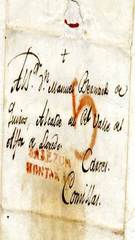 +
A Dn. Manuel Bernardo de
Quiros, Alcalde del Rl. Valle de
Alfoz de Lloredo.
5
CABEZON
MONTAÑA
Casar.
Comillas.